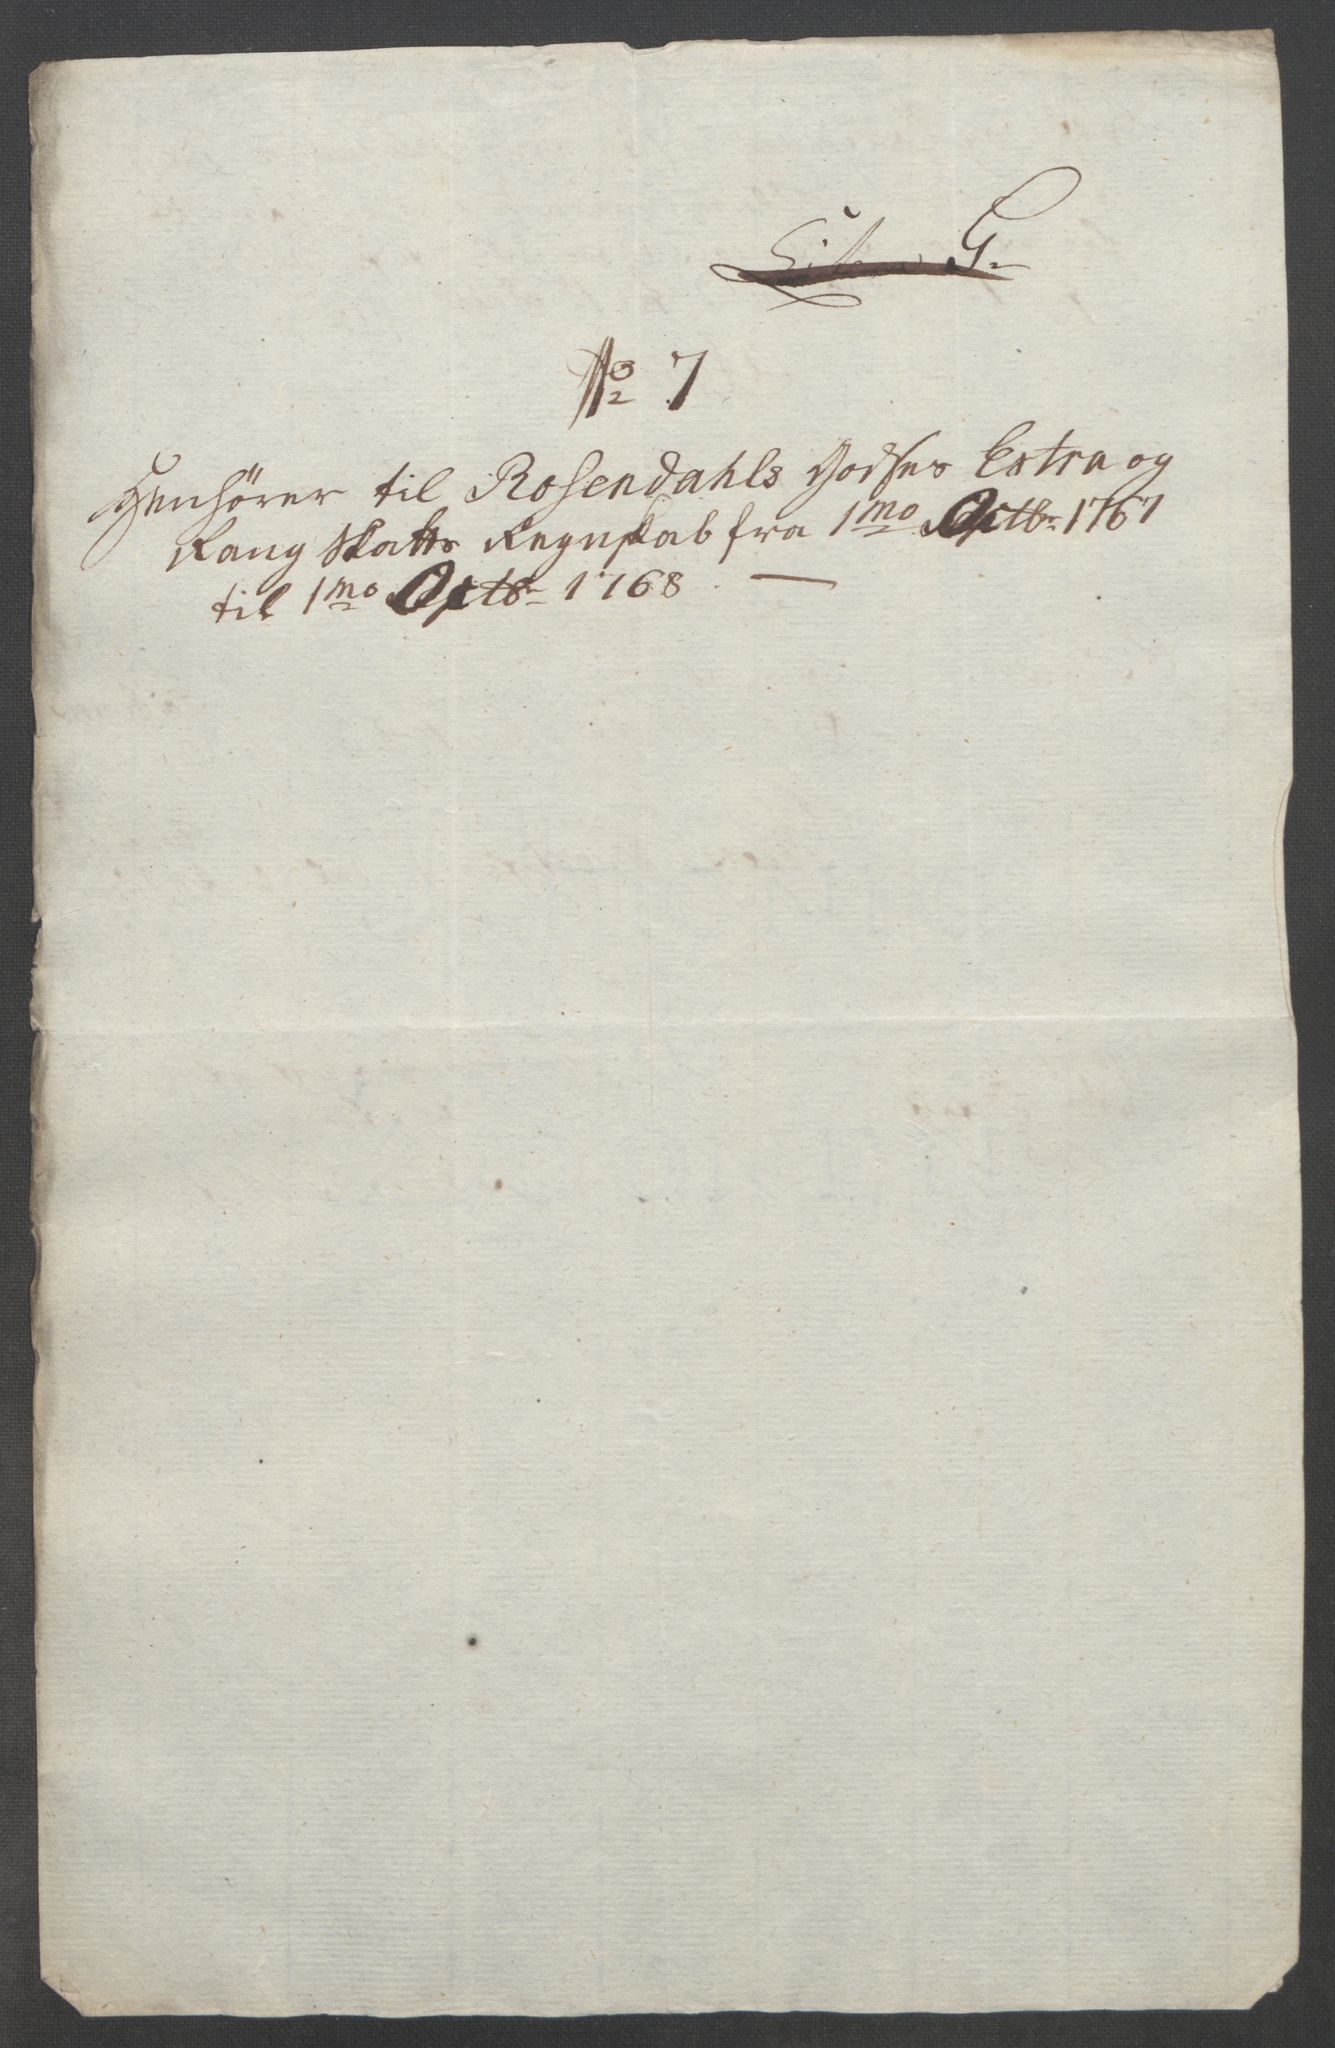 Litra G.
No 7
Henhörer til Rosendahls Godses Extra og
Rang Skatts Regnskab fra 1mo Octbr 1767
til 1mo Octbr 1768. —